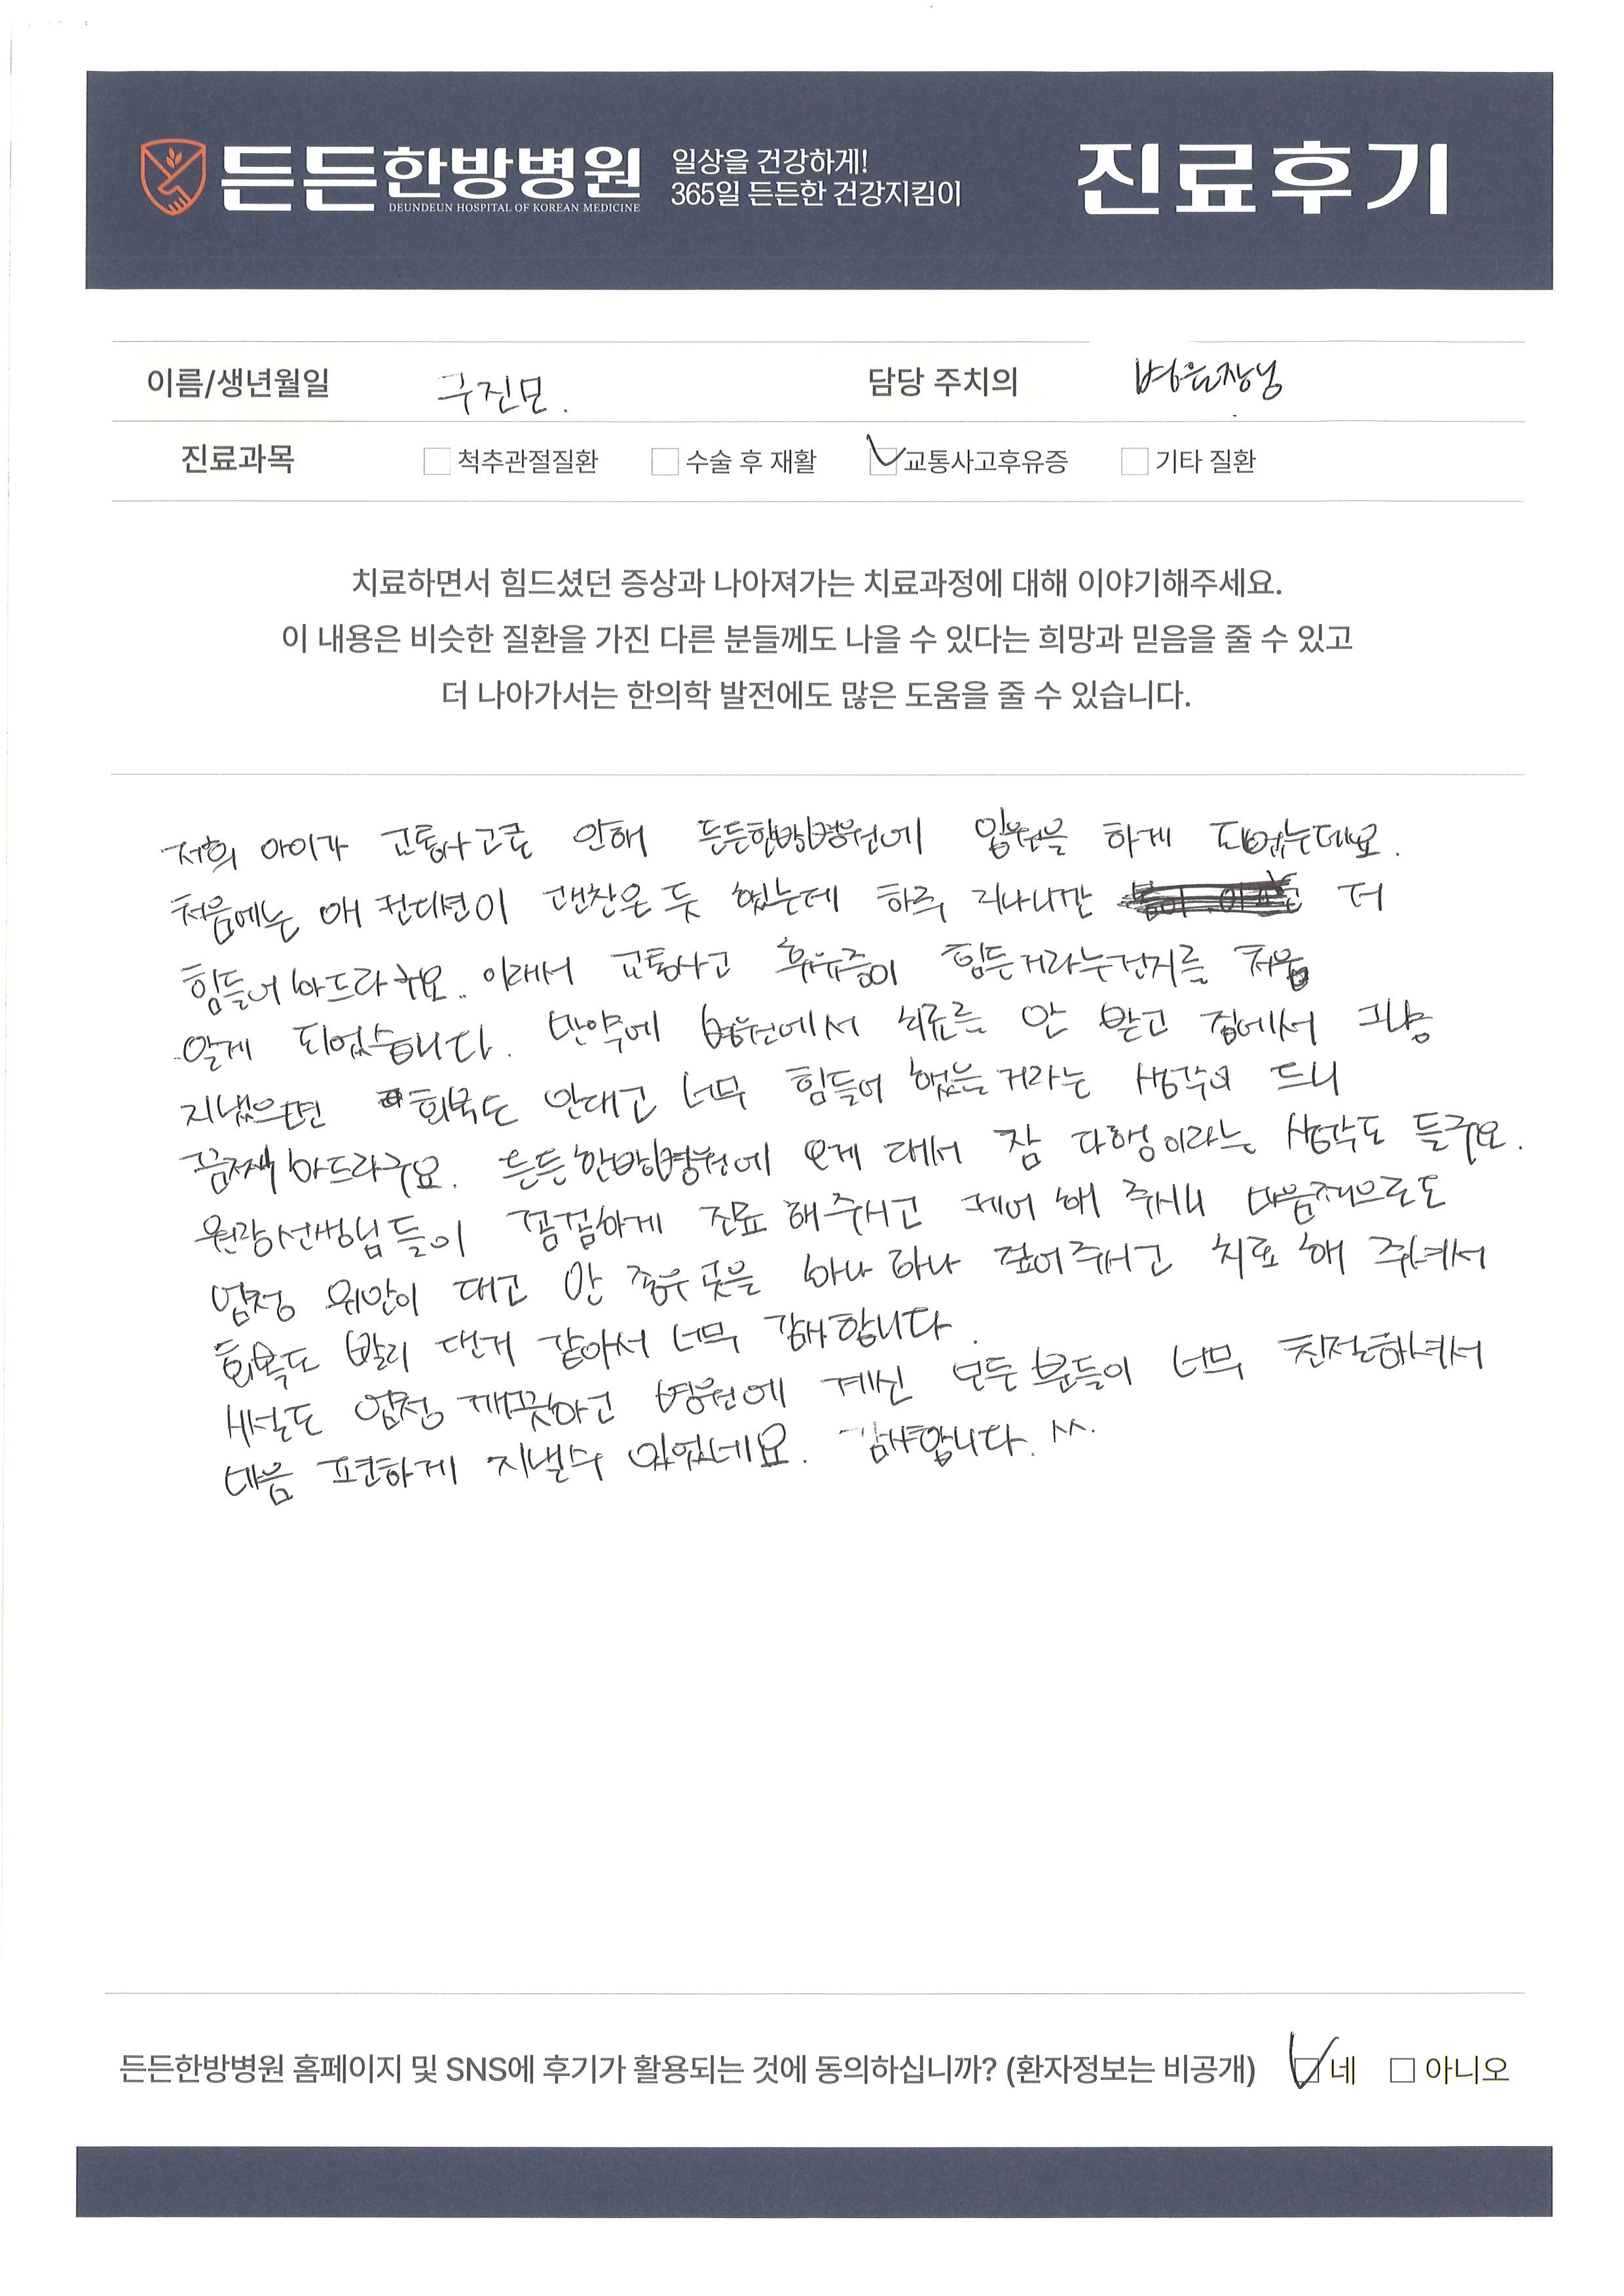 든든한방병원
DEUNDEUN HOSPITAL OF KOREAN MEDICINE
일상을 건강하게!
365일 든든한 건강지킴이
진료후기
이름/생년월일 구진모. 담당 주치의 병원장님
진료과목 척추관절질환 수술 후 재활 교통사고후유증 기타 질환
치료하면서 힘드셨던 증상과 나아져가는 치료과정에 대해 이야기해주세요.
이 내용은 비슷한 질환을 가진 다른 분들께도 나을 수 있다는 희망과 믿음을 줄 수 있고
더 나아가서는 한의학 발전에도 많은 도움을 줄 수 있습니다.
저희 아이가 교통사고로 인해 든든한방병원에 입원을 하게 되었는데요.
처음에는 애 컨디션이 괜찮은 듯 했는데 하루 지나니깐 더
힘들어 하드라구요.. 이래서 교통사고 후유증이 힘든거라는건지를 처음
알게 되었습니다. 만약에 병원에서 치료를 안 받고 집에서 그냥
지냈으면 회복도 안대고 너무 힘들어 했을거라는 생각이 드니
끔찍 하드라구요. 든든한방병원에 오게 대서 참 다행이라는 생각도 들구요.
원장선생님들이 꼼꼼하게 진료 해주시고 케어 해 주시니 마음적으로도
엄청 위안이 대고 안 좋은 곳을 하나 하나 짚어주시고 치료 해 주셔서
회복도 빨리 댄거 같아서 너무 감사합니다.
시설도 엄청 깨끗하고 병원에 계신 모든 분들이 너무 친절하셔서
마음 편하게 지낼수 있었네요. 감사합니다. ^^.
든든한방병원 홈페이지 및 SNS에 후기가 활용되는 것에 동의하십니까? (환자정보는 비공개) 네 아니오